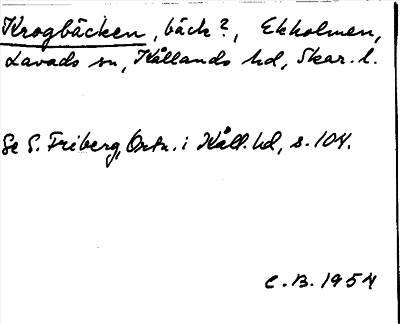 Krogbäcken, bäck?, Ekholmen,
Lavads sn, Kållands hd, Skar. l.
Se S. Friberg, Ortn. i Kåll. hd, s. 104.
C. B. 1954